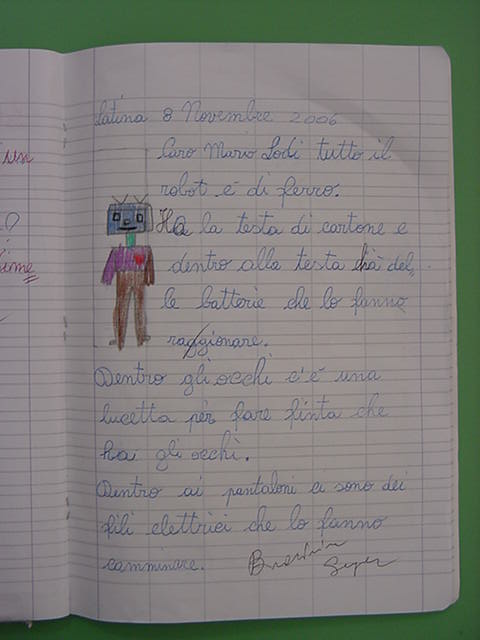 Latina 8 Novembre 2006
Caro Mario Lodi tutto il
robot è di ferro.
Ha la testa di cartone e
dentro alla testa ha del
le batterie che lo fanno
raggionare.
Dentro gli occhi c'è una
lucetta per fare finta che
ha gli occhi.
Dentro ai pantaloni ci sono dei
fili elettrici che lo fanno
camminare.
un